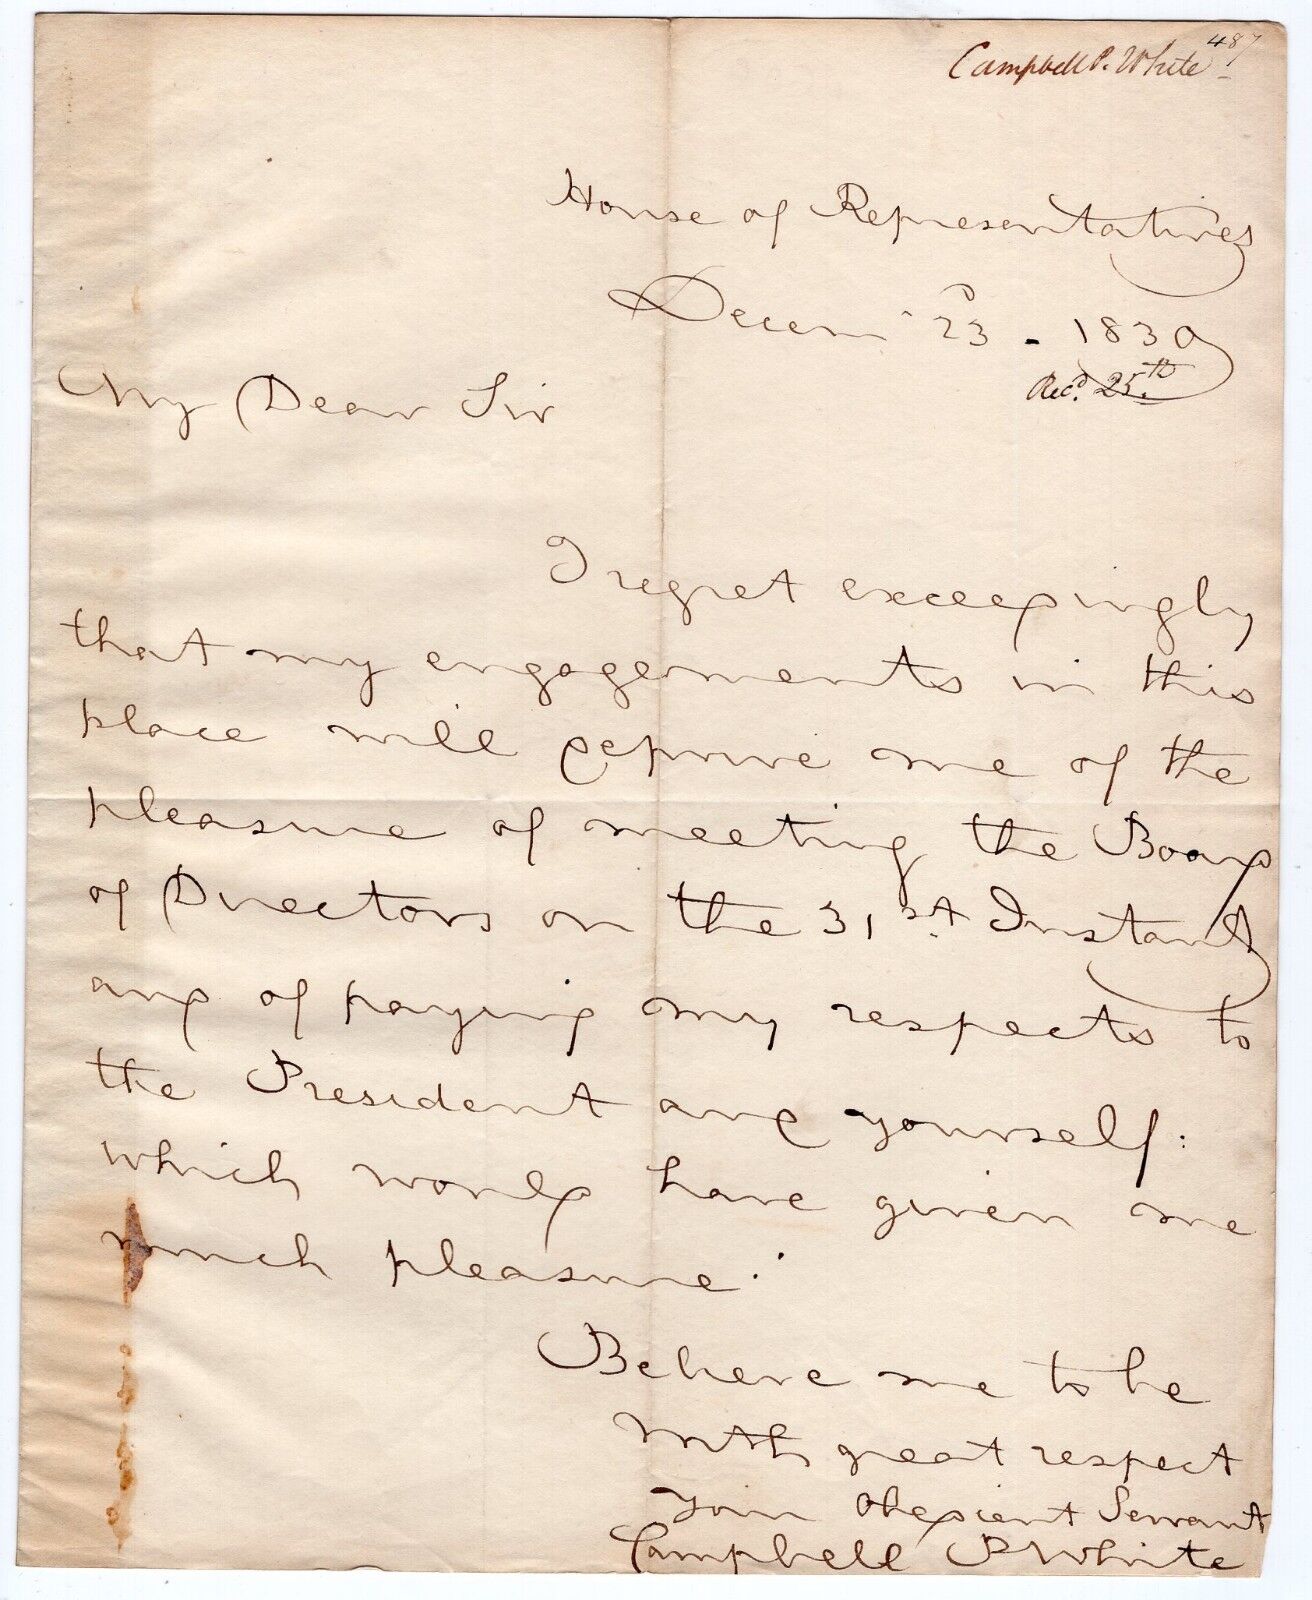 487
Campbell P. White
House of Representatives
Decem 23 - 1830
Recd. 25th
My Dear Sir
I regret exceedingly
that my engagements in this
place will deprive me of the
pleasure of meeting the Board
of Directors on the 31st Instant
and of paying my respects to
the President and yourself:
which would have given me
much pleasure.
Believe me to be
with great respect
your Obedient Servant
Campbell P White